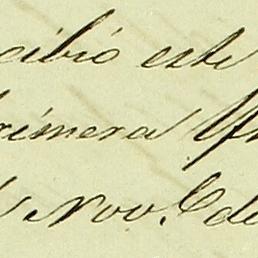 cibió este
rimera Yn
Nov.e de